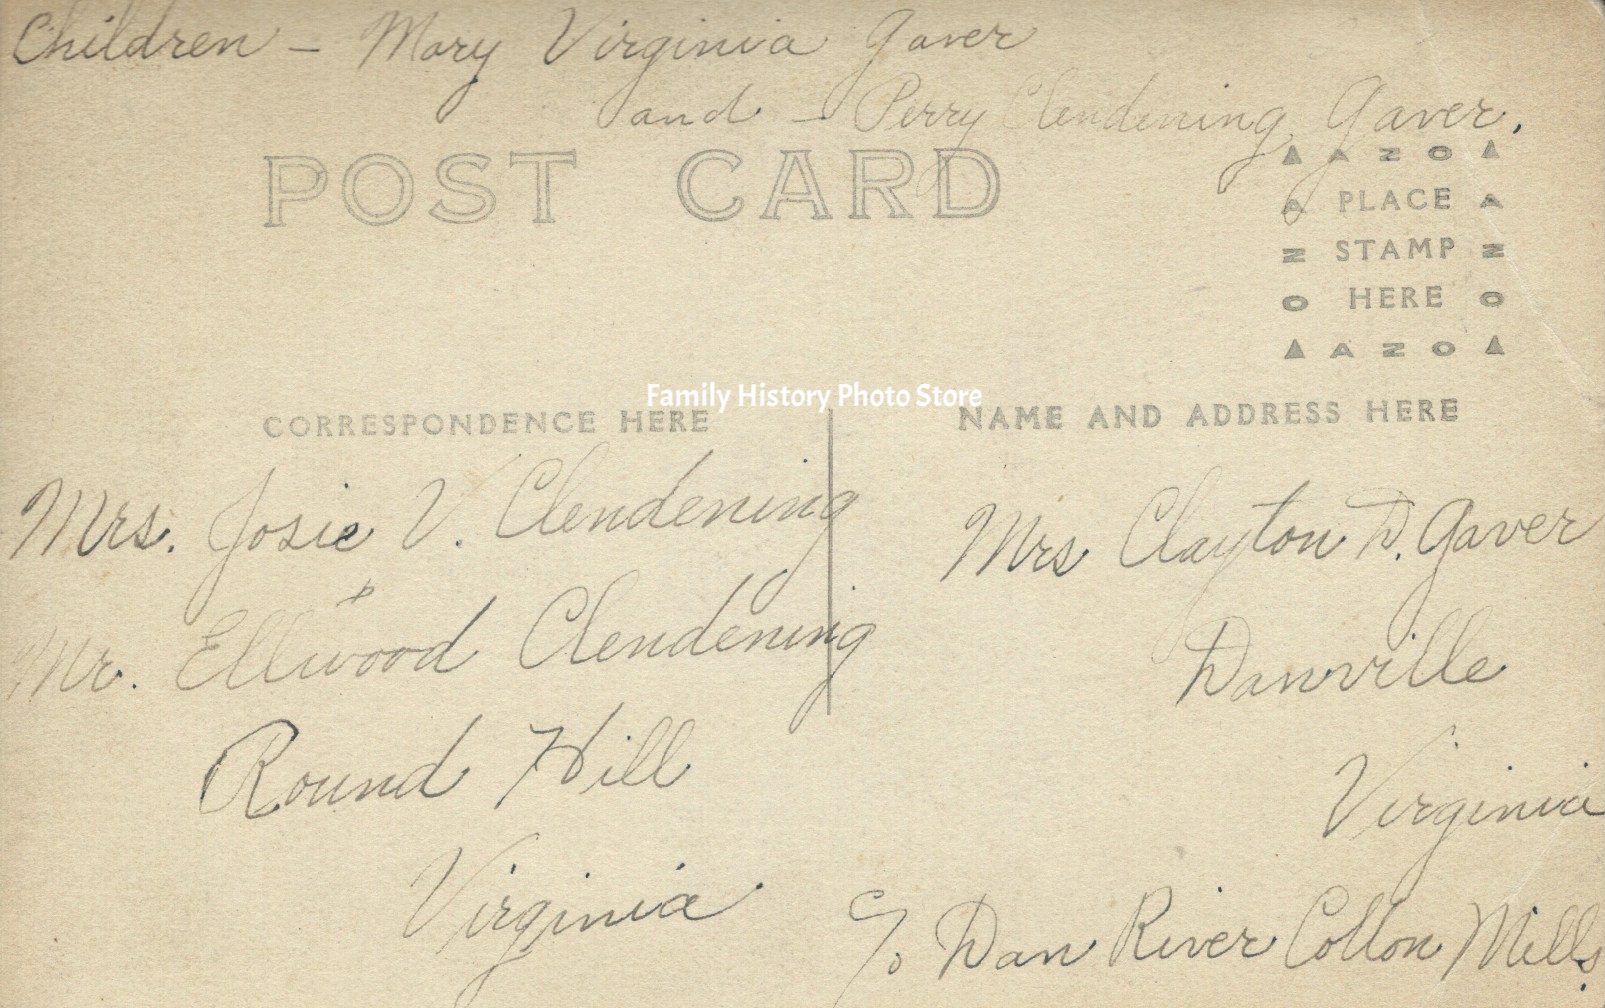 Children - Mary Virginia Gaver
and - Perry Clendening Gaver.
POST CARD
▲ A Z O ▲
A PLACE A
Z STAMP Z
O HERE O
▲ A Z O ▲
Family History Photo Store
CORRESPONDENCE HERE
NAME AND ADDRESS HERE
Mrs. Josie V. Clendening
+
Mr. Ellwood Clendening
Round Hill
Virginia
Mrs Clayton D. Gaver
Danville
Virginia
c/o Dan River Cotton Mills.